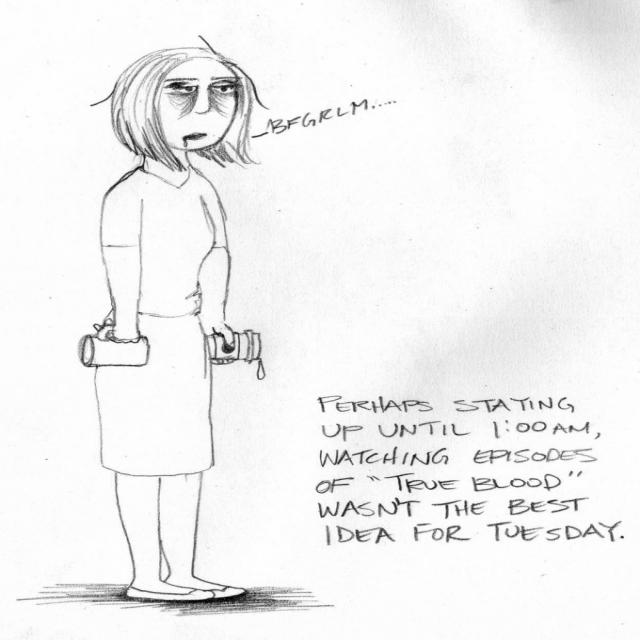 BFGRLM.....
PERHAPS STAYING
UP UNTIL 1:00 AM,
WATCHING EPISODES
OF "TRUE BLOOD"
WASN'T THE BEST
IDEA FOR TUESDAY.